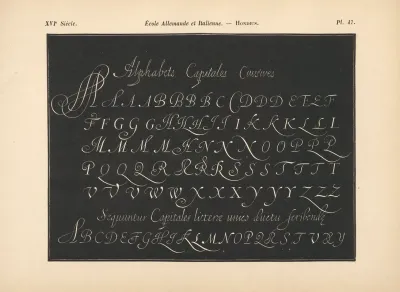 XVIe Siècle. École Allemande et Italienne. — Hondius. Pl. 47.
Alphabets Capitales Cursives
A A A A B B B B C C D D D E E E F
F F G G G H H H I I I K K K L L L
M M M M M N N N X O O P P P P
P Q Q Q R R R R S S S T T T T
V V V V W W X X X X Y Y Y Z Z Z
Sequuntur Capitales literæ unius ductu scribendæ
A B C D E F G H I K L M N O P Q R S T V X Y